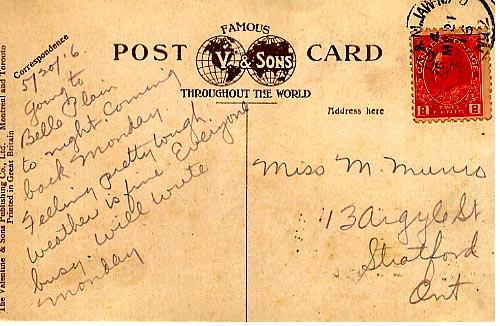 FAMOUS
POST V. & SONS CARD
THROUGHOUT THE WORLD
Correspondence
Address here
5/20/16.
Going to
Belle Plain
to night. Coming
back Monday
Feeling pretty tough.
Weather is fine. Everyone
busy. Will write
Monday
Miss M. Munro
13 Argyle St.
Stratford
Ont.
The Valentine & Sons Publishing Co., Ltd. Montreal and Toronto
Printed in Great Britain